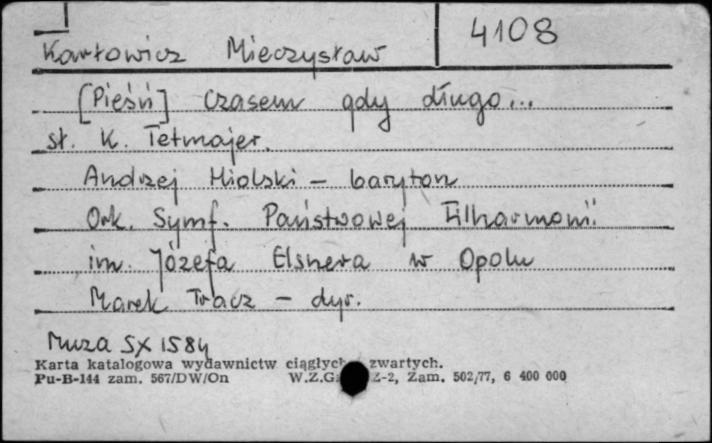 4108
Karłowicz Mieczysław
[Pieśń] Czasem gdy długo...
sł. K. Tetmajer.
Andrzej Hiolski - baryton
Ork. Symf. Państwowej Filharmonii
im. Józefa Elsnera w Opolu
Marek Tracz - dyr.
Muza SX 1584
Karta katalogowa wydawnictw ciągłych zwartych.
Pu-B-144 zam. 567/DW/On W.Z.G. Z-2, Zam. 502/77, 6 400 000